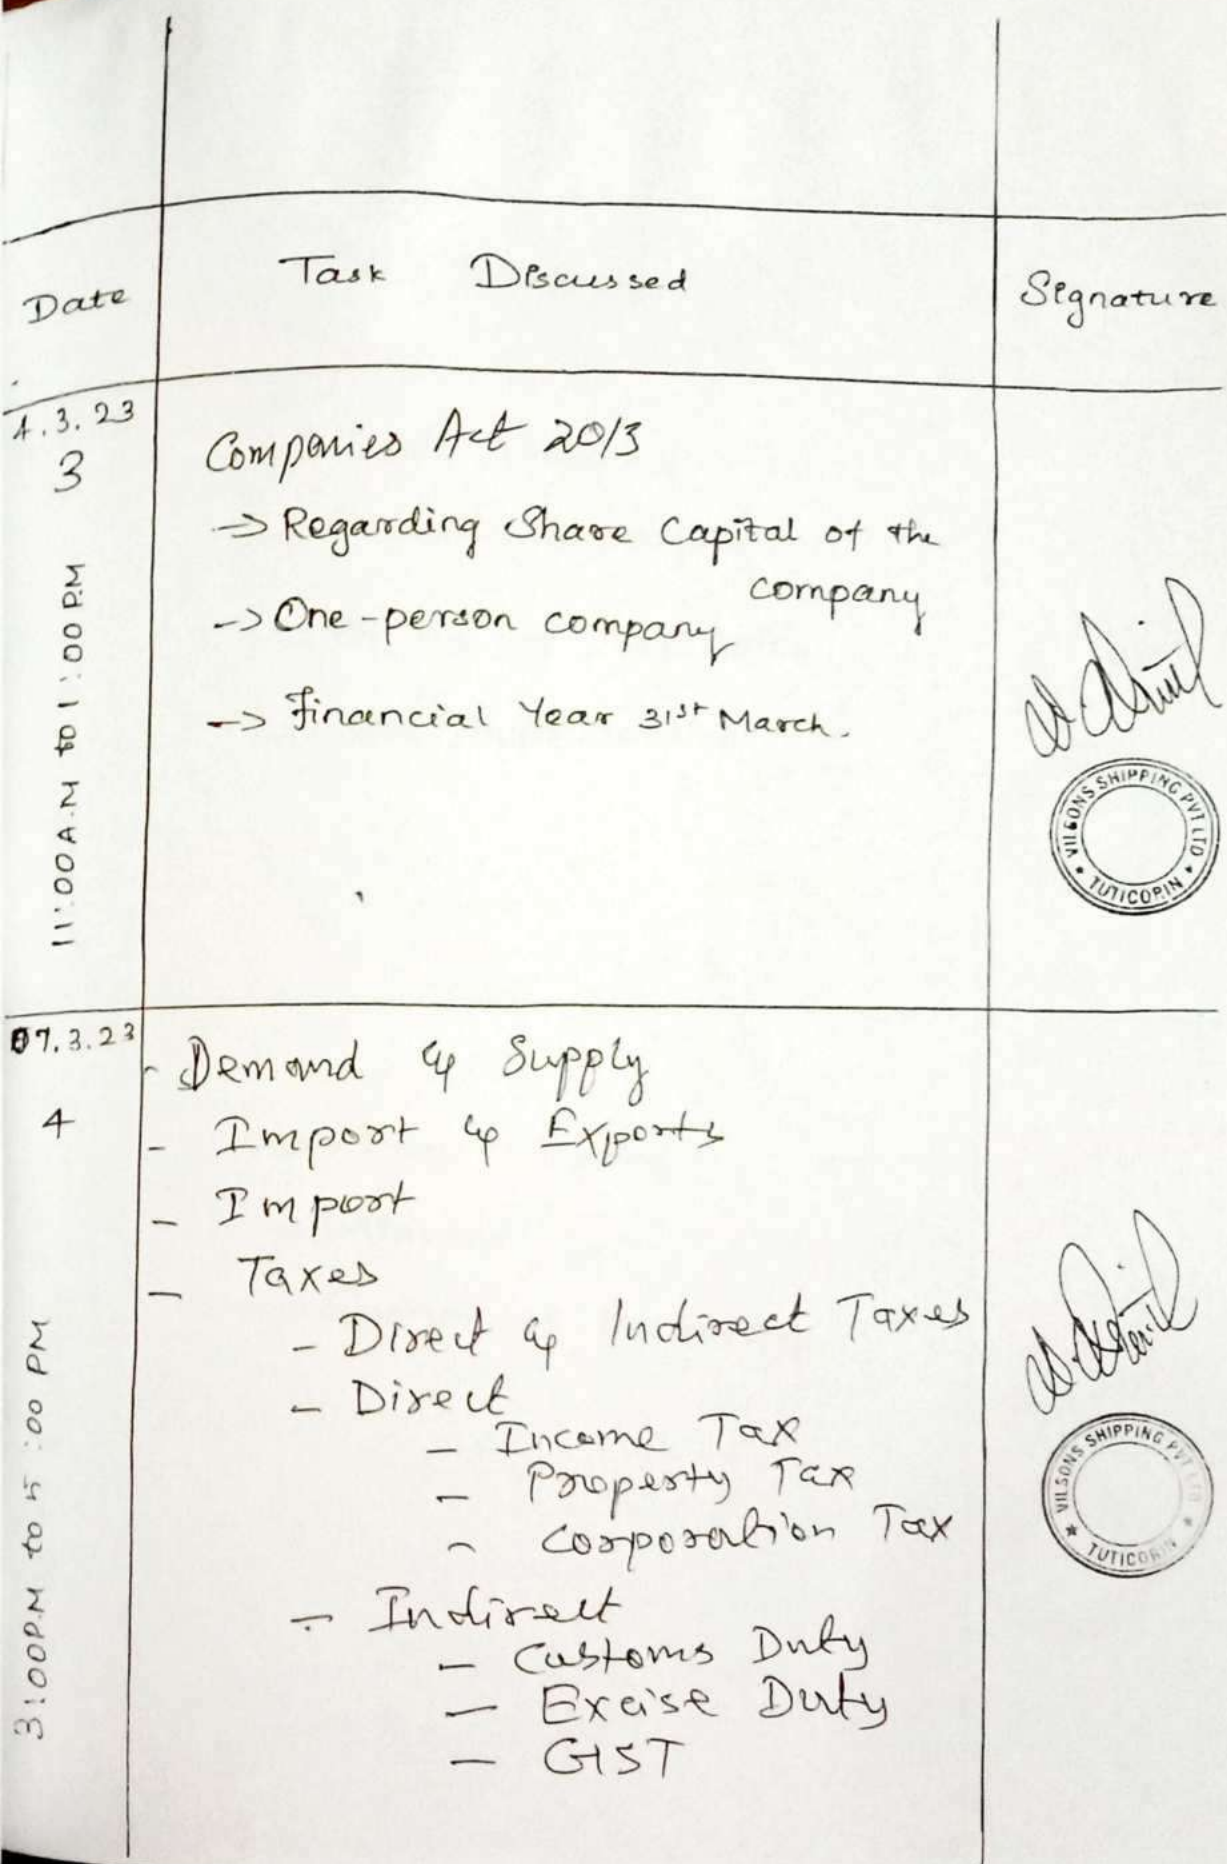 Date
Task Discussed
Signature
4.3.23
3
11:00 A.M to 1:00 P.M
Companies Act 2013
-> Regarding Share Capital of the
company
-> One-person company
-> Financial Year 31st March.
VILSONS SHIPPING PVT LTD
TUTICORIN
07.3.23
4
3:00 P.M to 5:00 PM
- Demand & Supply
- Import & Exports
- Import
- Taxes
- Direct & Indirect Taxes
- Direct
- Income Tax
- Property Tax
- Corporation Tax
- Indirect
- Customs Duty
- Excise Duty
- GST
VILSONS SHIPPING PVT LTD
TUTICORIN